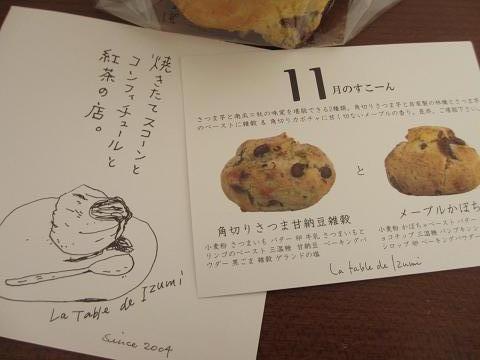 焼きたてスコーンと
コンフィチュールと
紅茶の店。
La Table de Izumi
Since 2004
11月のすこーん
さつま芋と南瓜=秋の味覚を堪能できる2種類。角切りさつま芋と自家製の林檎とさつま芋
のペーストに雑穀 & 角切りカボチャに甘く切ないメープルの香り。是非、ご堪能下さい
と
角切りさつま甘納豆雑穀
小麦粉 さつまいも バター 卵 牛乳 さつまいもと
リンゴのペースト 三温糖 甘納豆 ベーキングパ
ウダー 黒ごま 雑穀 ゲランドの塩
メープルかぼち
小麦粉 かぼちゃペースト バター
ョコチップ 三温糖 パンプキン
シロップ 卵 ベーキングパウダー
La table de Izumi